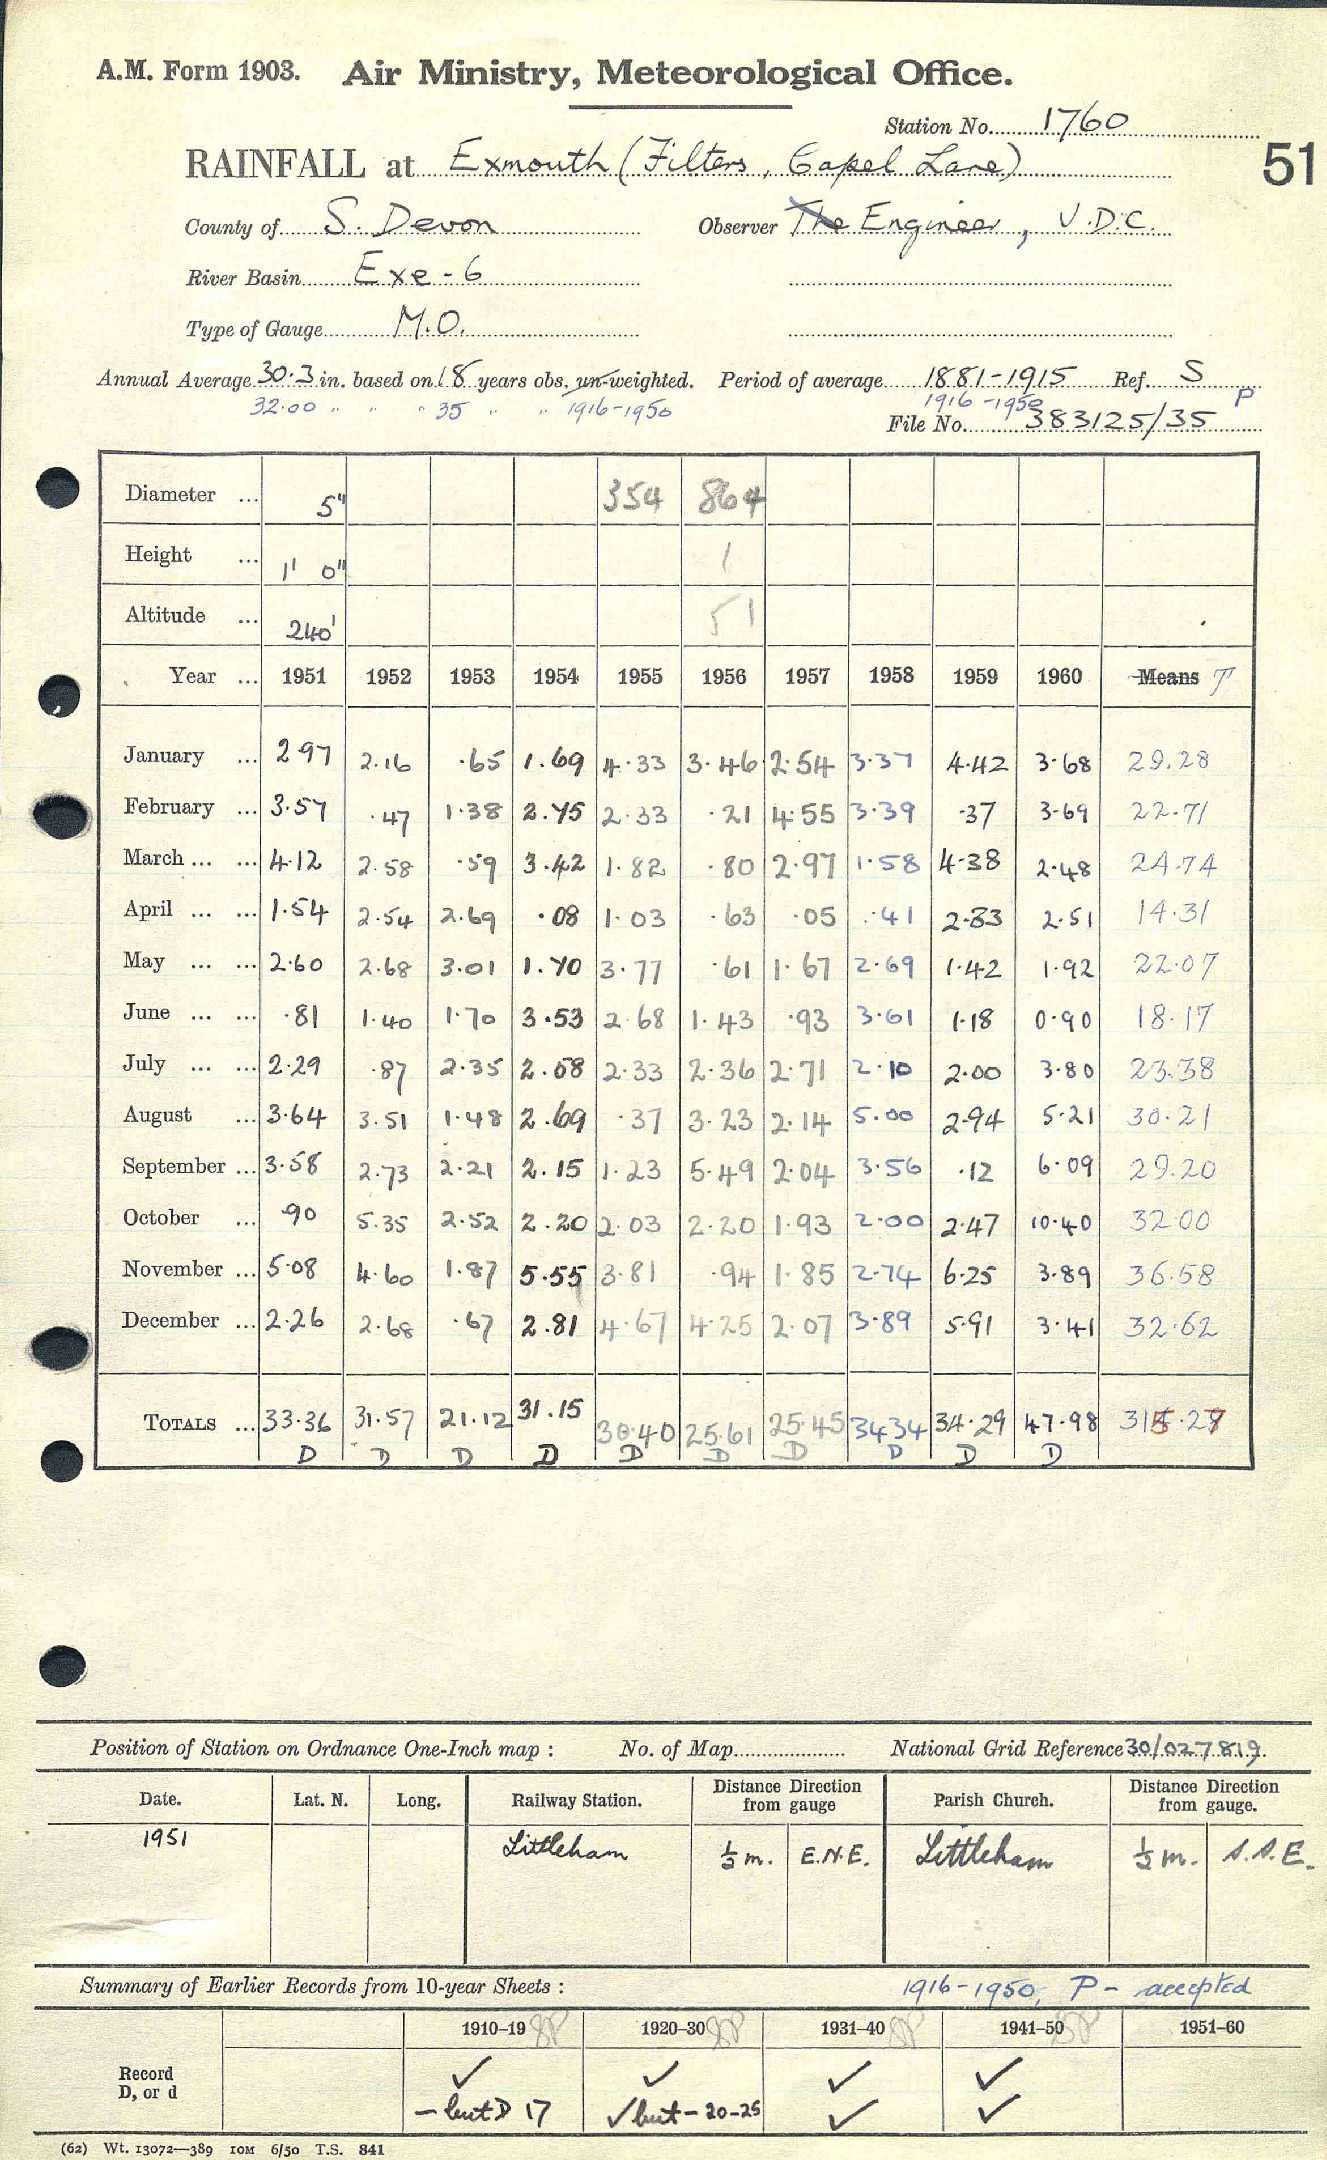 A.M. Form 1903. Air Ministry, Meteorological Office.
Station No. 1760
RAINFALL at Exmouth (Filters, Capel Lane)
51
County of S. Devon Observer The Engineer, U.D.C.
River Basin Exe - 6
Type of Gauge M.O.
Annual Average 30.3 in. based on 18 years obs. un-weighted. Period of average 1881-1915 Ref. S
32.00 " " " 35 " " 1916-1950 1916-1950 P
File No. 383125/35
Diameter ... 5" 354 864
Height ... 1' 0" 1
Altitude ... 240' 51
Year ... 1951 1952 1953 1954 1955 1956 1957 1958 1959 1960 Means T
January ... 2.97 2.16 .65 1.69 4.33 3.46 2.54 3.37 4.42 3.68 29.28
February ... 3.57 .47 1.38 2.75 2.33 .21 4.55 3.39 .37 3.69 22.71
March ... ... 4.12 2.58 .59 3.42 1.82 .80 2.97 1.58 4.38 2.48 24.74
April ... ... 1.54 2.54 2.69 .08 1.03 .63 .05 .41 2.83 2.51 14.31
May ... ... 2.60 2.68 3.01 1.70 3.77 .61 1.67 2.69 1.42 1.92 22.07
June ... ... .81 1.40 1.70 3.53 2.68 1.43 .93 3.61 1.18 0.90 18.17
July ... ... 2.29 .87 2.35 2.58 2.33 2.36 2.71 2.10 2.00 3.80 23.38
August ... 3.64 3.51 1.48 2.69 .37 3.23 2.14 5.00 2.94 5.21 30.21
September ... 3.58 2.73 2.21 2.15 1.23 5.49 2.04 3.56 .12 6.09 29.20
October ... .90 5.35 2.52 2.20 2.03 2.20 1.93 2.00 2.47 10.40 32.00
November ... 5.08 4.60 1.87 5.55 3.81 .94 1.85 2.74 6.25 3.89 36.58
December ... 2.26 2.68 .67 2.81 4.67 4.25 2.07 3.89 5.91 3.41 32.62
TOTALS ... 33.36 31.57 21.12 31.15 30.40 25.61 25.45 34.34 34.29 47.98 315.27
D D D D D D D D D D
Position of Station on Ordnance One-Inch map : No. of Map National Grid Reference 30/027819.
Date. Lat. N. Long. Railway Station. Distance Direction from gauge Parish Church. Distance Direction from gauge.
1951 Littleham ½ m. E.N.E. Littleham ½ m. S.S.E.
Summary of Earlier Records from 10-year Sheets : 1916-1950, P - accepted
1910-19 1920-30 1931-40 1941-50 1951-60
Record ✓ ✓ ✓ ✓
D, or d - but D 17 ✓ but - 20-25 ✓ ✓
(62) Wt. 13072—389 10M 6/50 T.S. 841